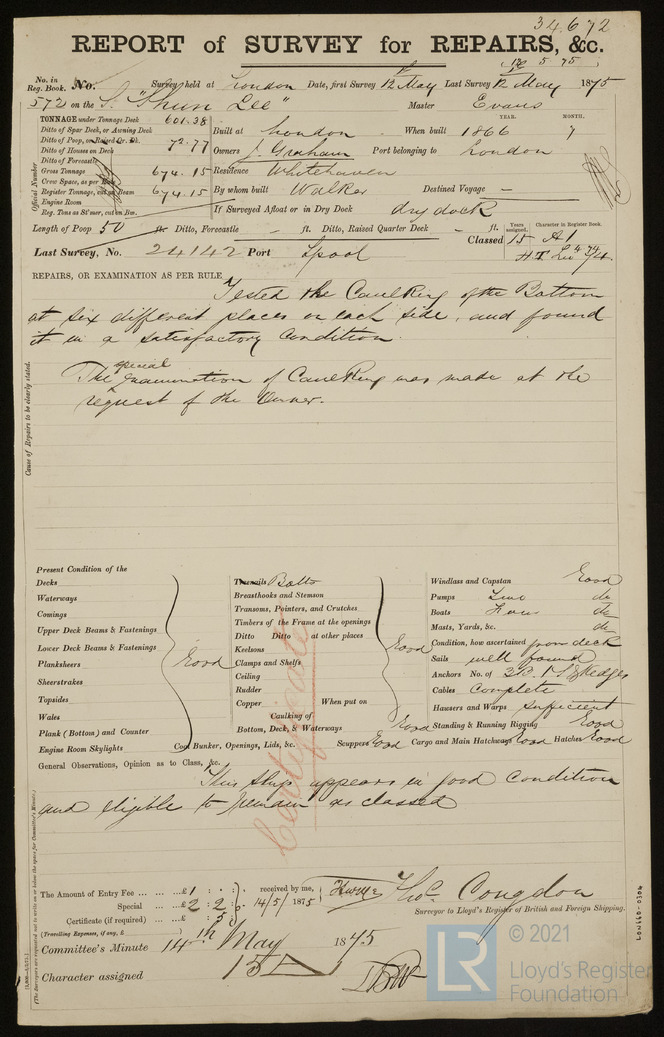 34672
REPORT of SURVEY for REPAIRS, &c.
No. in Reg. Book. No. Survey held at London Date, first Survey 12 May Last Survey 12 May 1875
572 on the S. "Shun Lee" Master Evans
TONNAGE under Tonnage Deck 601.38
Ditto of Spar Deck, or Awning Deck
Ditto of Poop, or Raised Qr. Dk. 72.77
Ditto of Houses on Deck
Ditto of Forecastle
Gross Tonnage 674.15
Crew Space, as per Book
Register Tonnage, cut on Beam 674.15
Engine Room
Reg. Tons as St'mer, cut on Bm.
Official Number
YEAR. MONTH.
Built at London When built 1866 7
Owners J. Graham Port belonging to London
Residence Whitehaven
By whom built Walker Destined Voyage —
If Surveyed Afloat or in Dry Dock dry dock
Length of Poop 50 ft. Ditto, Forecastle - ft. Ditto, Raised Quarter Deck - ft.
Years assigned. Character in Register Book.
Classed 15 A1
Last Survey, No. 24142 Port Lpool
REPAIRS, OR EXAMINATION AS PER RULE
Tested the Caulking of the Bottom
at six different places on each side, and found
it in a satisfactory condition.
The special examination of Caulking was made at the
request of the Owner.
Cause of Repairs to be clearly stated.
Present Condition of the
Decks
Waterways
Comings
Upper Deck Beams & Fastenings
Lower Deck Beams & Fastenings
Planksheers
Sheerstrakes
Topsides
Wales
Plank (Bottom) and Counter
Good
Engine Room Skylights Coal Bunker, Openings, Lids, &c. Scuppers Good Cargo and Main Hatchways Good Hatches Good
Treenails Bolts
Breasthooks and Stemson
Transoms, Pointers, and Crutches
Timbers of the Frame at the openings
Ditto Ditto at other places
Keelsons
Clamps and Shelfs
Ceiling
Rudder
Copper When put on
Caulking of Bottom, Deck, & Waterways Good
Good
Windlass and Capstan Good
Pumps Two do
Boats Four do
Masts, Yards, &c. do
Condition, how ascertained from deck
Sails well found
Anchors No. of 3 B. 1 S. 2 Kedges
Cables Complete
Hawsers and Warps Sufficient
Standing & Running Rigging Good
General Observations, Opinion as to Class, &c.
This ship appears in good condition
and eligible to remain as classed
Certificate
The Amount of Entry Fee £1 : : received by me,
Special £2 : 2 : 0 14/5/1875
Certificate (if required) : 5 :
(Travelling Expenses, if any, £ )
Thos. Congdon
Surveyor to Lloyd's Register of British and Foreign Shipping.
Committee's Minute 14th May 1875
Character assigned 15 A
LON660-0304
© 2021
LR Lloyd's Register
Foundation